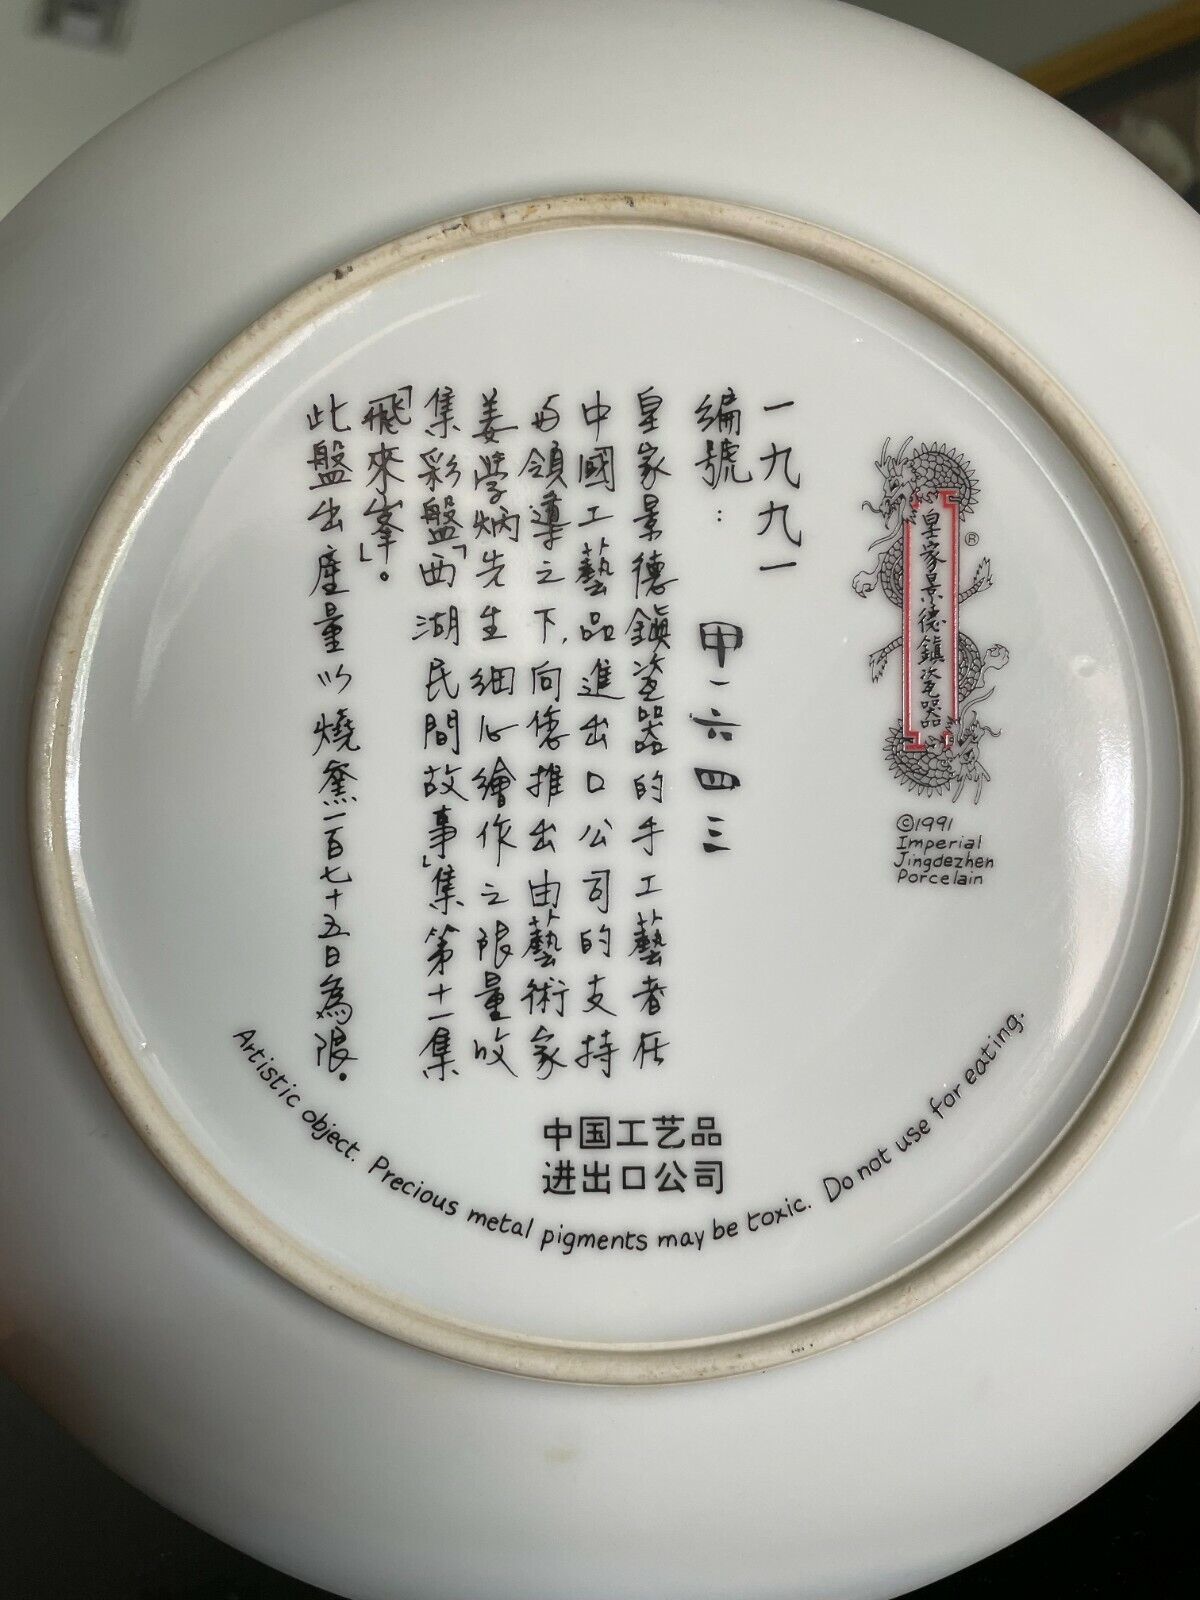 皇家景德鎮瓷器
®
©1991
Imperial
Jingdezhen
Porcelain
一九九一
編號：甲一六四三
皇家景德鎮瓷器的手工藝者在
中國工藝品進出口公司的支持
与領導之下,向您推出由藝術家
姜學炳先生細心繪作之限量收
集彩盤「西湖民間故事」集第十一集
「飛來峯」。
此盤出產量以燒窯一百七十五日為限。
中国工艺品
进出口公司
Artistic object. Precious metal pigments may be toxic. Do not use for eating.